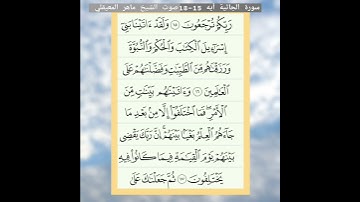 سورة الجاثية آيه 15-18 صوت الشيخ ماهر المعيقلي
رَبِّكُمْ تُرْجَعُونَ ١٥ وَلَقَدْ ءَاتَيْنَا بَنِىٓ
إِسْرَٰٓءِيلَ ٱلْكِتَٰبَ وَٱلْحُكْمَ وَٱلنُّبُوَّةَ
وَرَزَقْنَٰهُم مِّنَ ٱلطَّيِّبَٰتِ وَفَضَّلْنَٰهُمْ عَلَى
ٱلْعَٰلَمِينَ ١٦ وَءَاتَيْنَٰهُم بَيِّنَٰتٍ مِّنَ
ٱلْأَمْرِ ۖ فَمَا ٱخْتَلَفُوٓا۟ إِلَّا مِنۢ بَعْدِ مَا
جَآءَهُمُ ٱلْعِلْمُ بَغْيًۢا بَيْنَهُمْ ۚ إِنَّ رَبَّكَ يَقْضِى
بَيْنَهُمْ يَوْمَ ٱلْقِيَٰمَةِ فِيمَا كَانُوا۟ فِيهِ
يَخْتَلِفُونَ ١٧ ثُمَّ جَعَلْنَٰكَ عَلَىٰ